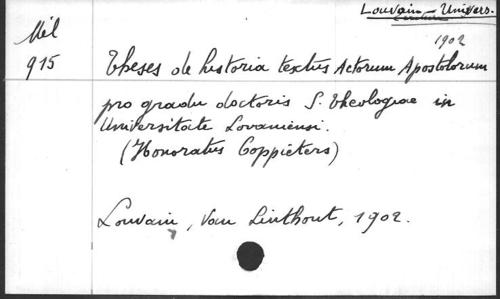 Louvain - Univers.
1902
Mél
915
Theses de historia textus Actorum Apostolorum
pro gradu doctoris S. Theologiae in
Universitate Lovaniensi.
(Honoratus Coppieters)
Louvain, Van Linthout, 1902.